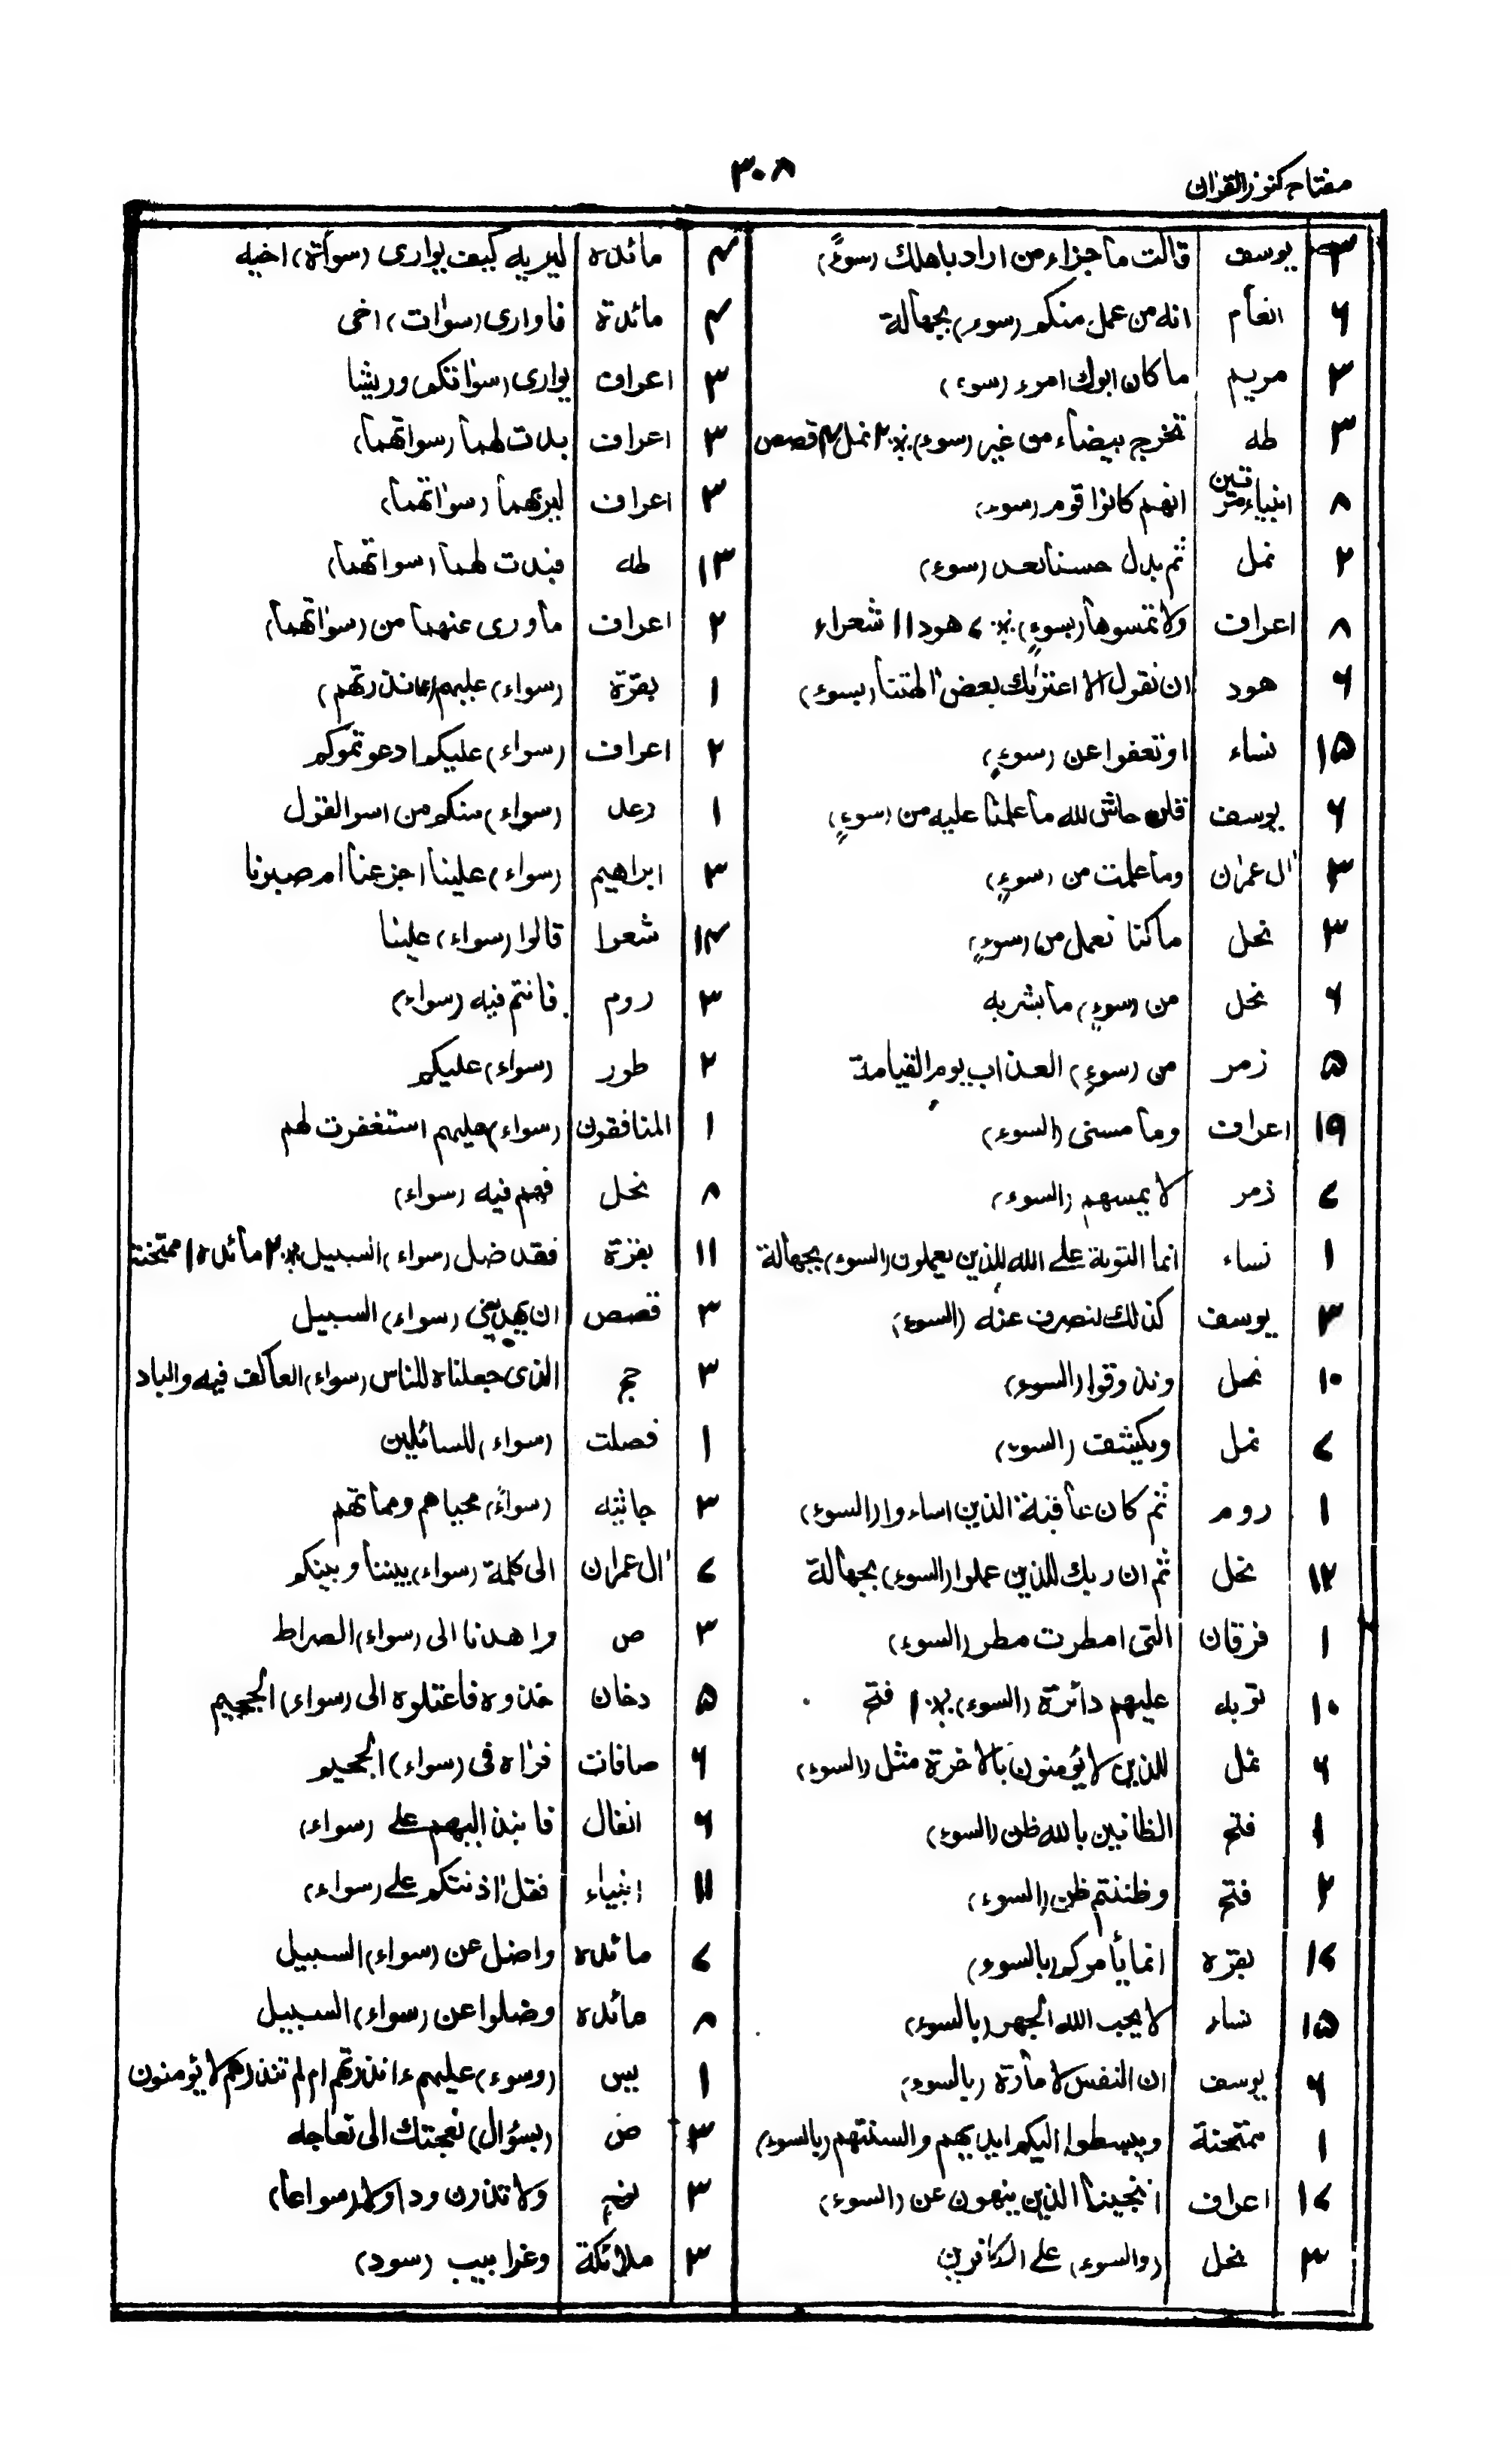 مفتاح كنوز القران
٣٠٨
٣ يوسف قالت ما جزاء من اراد باهلك (سوءً)
۶ انعام انه من عمل منكم (سوء) بجهالة
٣ مريم ما كان ابوك امرء (سوء)
٣ طه تخرج بيضاء من غير (سوء) ٢ نمل ۴ قصص
٨ انبياء مرتين انهم كانوا قوم (سوء)
٢ نمل ثم بدل حسنا بعد (سوء)
٨ اعراف ولا تمسوها (بسوءٍ) ٧ هود ١١ شعراء
۶ هود ان نقول الا اعتراك بعض الهتنا (بسوء)
١۵ نساء او تعفوا عن (سوءٍ)
۶ يوسف قلن حاش لله ما علمنا عليه من (سوءٍ)
٣ اٰل عمرٰن وما عملت من (سوءٍ)
٣ نحل ما كنا نعمل من (سوءٍ)
۶ نحل من (سوءٍ) ما بشر به
۵ زمر من (سوء) العذاب يوم القيامة
١٩ اعراف وما مسنى (السوء)
٧ زمر لا يمسهم (السوء)
١ نساء انما التوبة على الله للذين يعملون (السوء) بجهالة
٣ يوسف كذلك لنصرف عنه (السوء)
١٠ نحل وتذوقوا (السوء)
٧ نمل ويكشف (السوء)
١ روم ثم كان عاقبة الذين اساءوا (السوء)
١٢ نحل ثم ان ربك للذين عملوا (السوء) بجهالة
١ فرقان التى امطرت مطر (السوء)
١٠ توبه عليهم دائرة (السوء) ١ فتح
۶ نمل للذين لا يؤمنون بالاخرة مثل (السوء)
١ فتح الظانين بالله ظن (السوء)
٢ فتح وظننتم ظن (السوء)
١٧ بقره انما يأمركم (بالسوء)
١۵ نساء لا يحب الله الجهر (بالسوء)
۶ يوسف ان النفس لامارة (بالسوء)
١ ممتحنة ويبسطوا اليكم ايديهم والسنتهم (بالسوء)
١٧ اعراف انجينا الذين ينهون عن (السوء)
٣ نحل (والسوء) على الكافرين
۴ مائده ليريه كيف يوارى (سوأة) اخيه
۴ مائدة فاوارى (سوٰات) اخى
٣ اعراف يوارى (سوٰاتكم) وريشا
٣ اعراف بدت لهما (سواتهما)
٣ اعراف ليريهما (سوٰاتهما)
١٣ طه فبدت لهما (سواتهما)
٢ اعراف ما ورى عنهما من (سوٰاتهما)
١ بقرة (سواء) عليهم (ءانذرتهم)
٢ اعراف (سواء) عليكم ادعوتموكم
١ رعد (سواء) منكم من اسر القول
٣ ابراهيم (سواء) علينا اجزعنا ام صبرنا
١۴ شعرا قالوا (سواء) علينا
٣ روم فانتم فيه (سواء)
٢ طور (سواء) عليكم
١ المنافقون (سواء) عليهم استغفرت لهم
٨ نحل فهم فيه (سواء)
١١ بقرة فقد ضل (سواء) السبيل ٢ مائده ١ ممتحنة
٣ قصص ان يهدينى (سواء) السبيل
٣ حج الذى جعلناه للناس (سواء) العاكف فيه والباد
١ فصلت (سواء) للسائلين
٣ جاثيه (سواءً) محياهم ومماتهم
٧ اٰل عمران الى كلمة (سواء) بيننا وبينكم
٣ ص واهدنا الى (سواء) الصراط
۵ دخان خذوه فاعتلوه الى (سواء) الجحيم
۶ صافات فراٰه فى (سواء) الجحيم
۶ انفال فانبذ اليهم على (سواء)
١١ انبياء فقل اٰذنتكم على (سواء)
٧ مائده واضل عن (سواء) السبيل
٨ مائده وضلوا عن (سواء) السبيل
١ يس (وسوء) عليهم ءانذرتهم ام لم تنذرهم لا يؤمنون
٣ ص (بسؤال) نعجتك الى نعاجه
٣ نوح ولا تذرن ودا ولا (سواعا)
٣ ملائكة وغرابيب (سود)